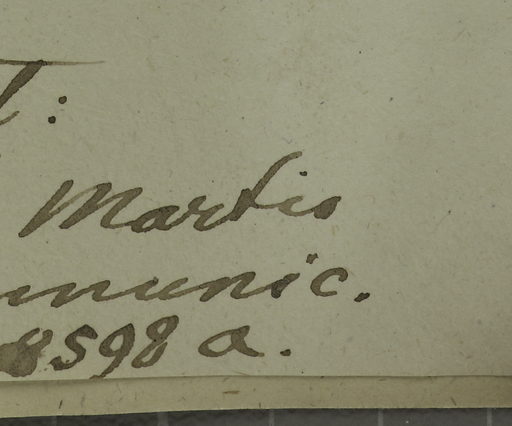 Martis
munic.
8598 a.